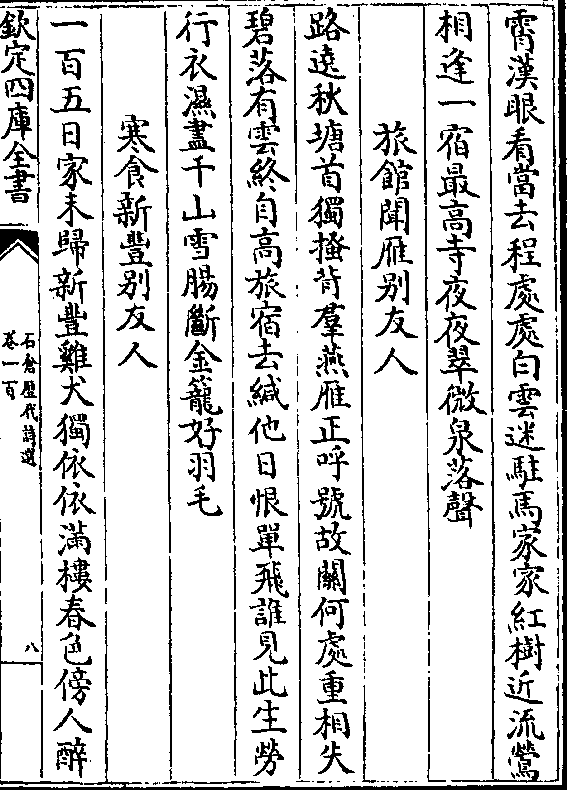 霄漢眼看當去程處處白雲迷駐馬家家紅樹近流鶯
相逢一宿最高寺夜夜翠微泉落聲
旅館聞雁别友人
路遠秋塘首獨搔背羣燕雁正呼號故關何處重相失
碧落有雲終自高旅宿去緘他日恨單飛誰見此生勞
行衣濕盡千山雪腸斷金籠好羽毛
寒食新豐别友人
一百五日家未歸新豐雞犬獨依依滿樓春色傍人醉
欽定四庫全書
石倉歷代詩選
卷一百
八